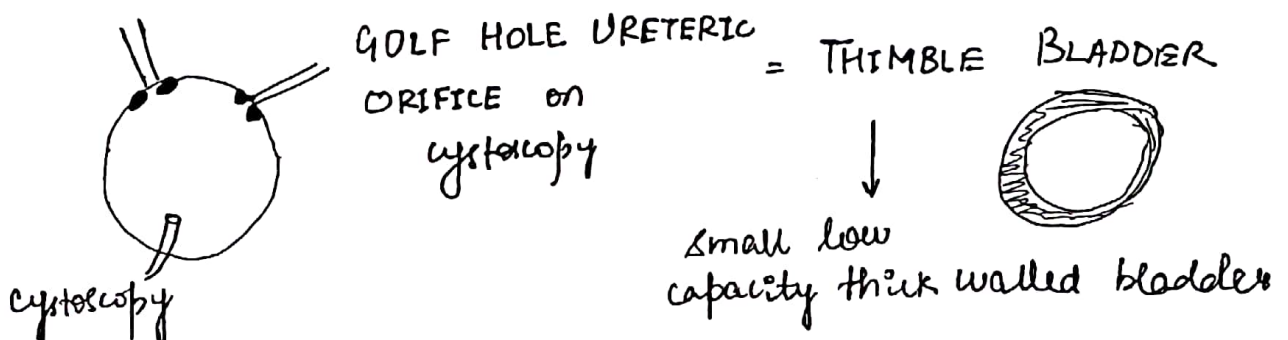 GOLF HOLE URETERIC
ORIFICE on
cystoscopy
= THIMBLE BLADDER
small low
capacity thick walled bladder
cystoscopy